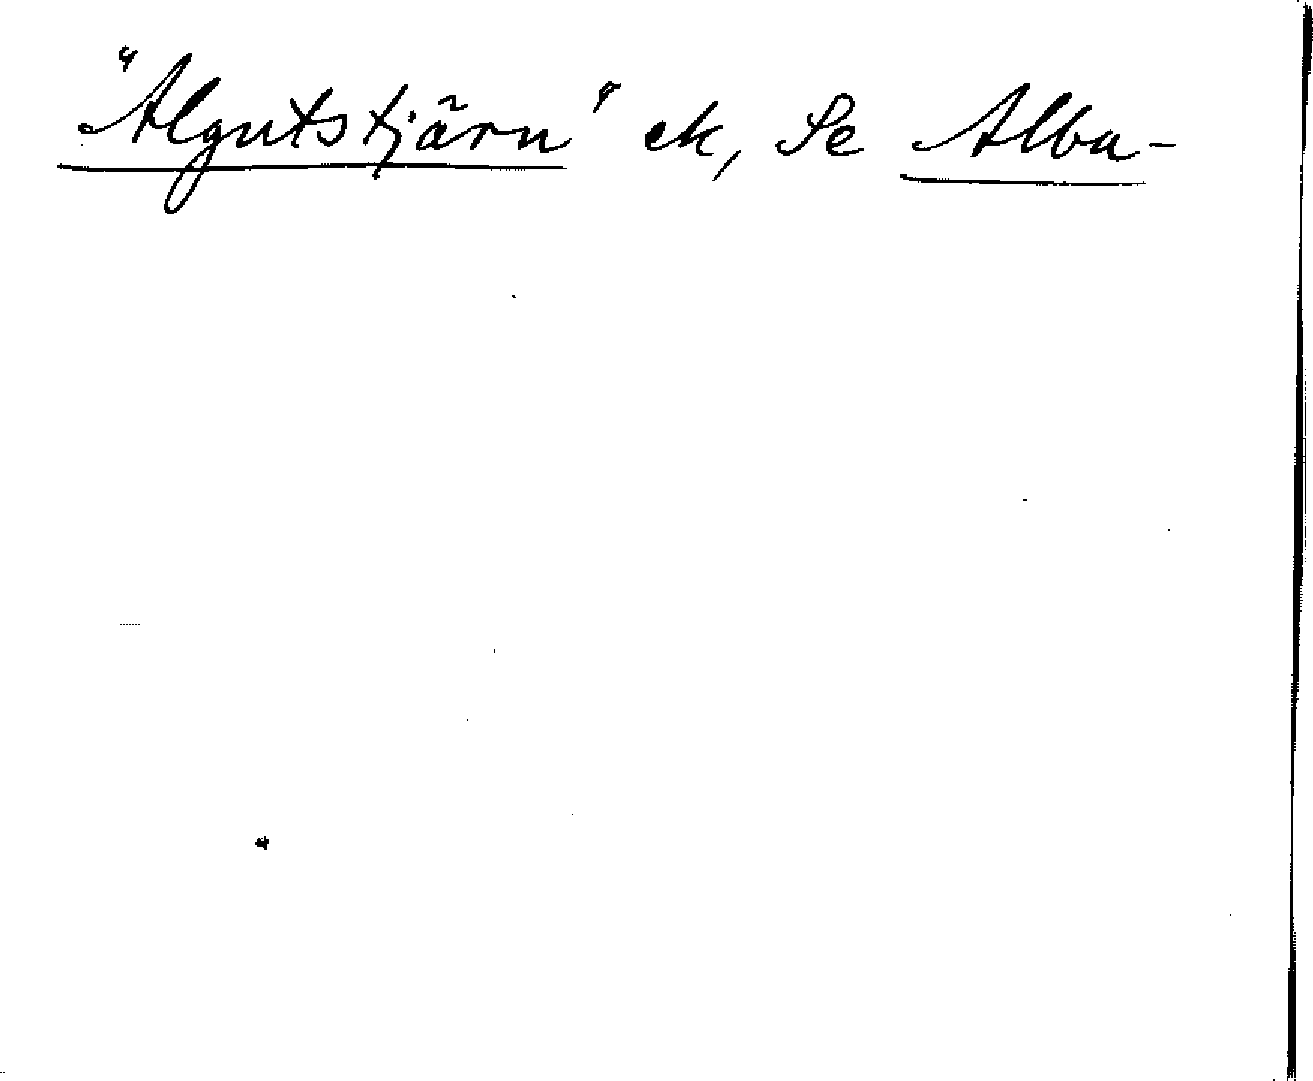 "Algutstjärn" ek, Se Alba-